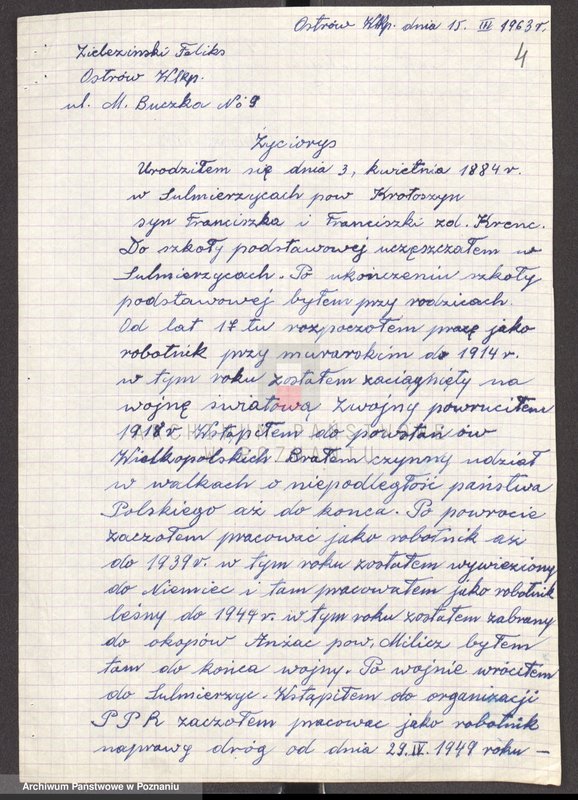 Ostrów Wlkp. dnia 15. III 1963 r.
4
Zielezinski Feliks
Ostrów Wlkp.
ul. M. Buczka No 9
Życiorys
Urodziłem się dnia 3, kwietnia 1884 r.
w Sulmierzycach pow Krotoszyn
syn Franciszka i Franciszki zd. Krenc.
Do szkoły podstawowej uczęszczałem w
Sulmierzycach. Po ukończeniu szkoły
podstawowej byłem przy rodzicach.
Od lat 17 tu rozpoczołem pracę jako
robotnik przy murarskim do 1914 r.
w tym roku zostałem zaciągnięty na
wojnę światową Zwojny powruciłem
1918 r Wstąpiłem do powstań ów
Wielkopolskich Brałem czynny udział
w walkach o niepodległość państwa
Polskiego aż do konca. Po powrocie
zaczołem pracować jako robotnik aż
do 1939 r. w tym roku zostałem wywieziony
do Niemiec i tam pracowałem jako robotnik
leśny do 1944 r. w tym roku zostałem zabrany
do okopów Anżac pow, Milicz byłem
tam do końca wojny. Po wojnie wróciłem
do Sulmierzyc. Wstąpiłem do organizacji
PPR zaczołem pracowac jako robotnik
naprawy dróg od dnia 29.IV.1949 roku –
ARCHIWUM PAŃSTWOWE
W POZNANIU
Archiwum Państwowe w Poznaniu